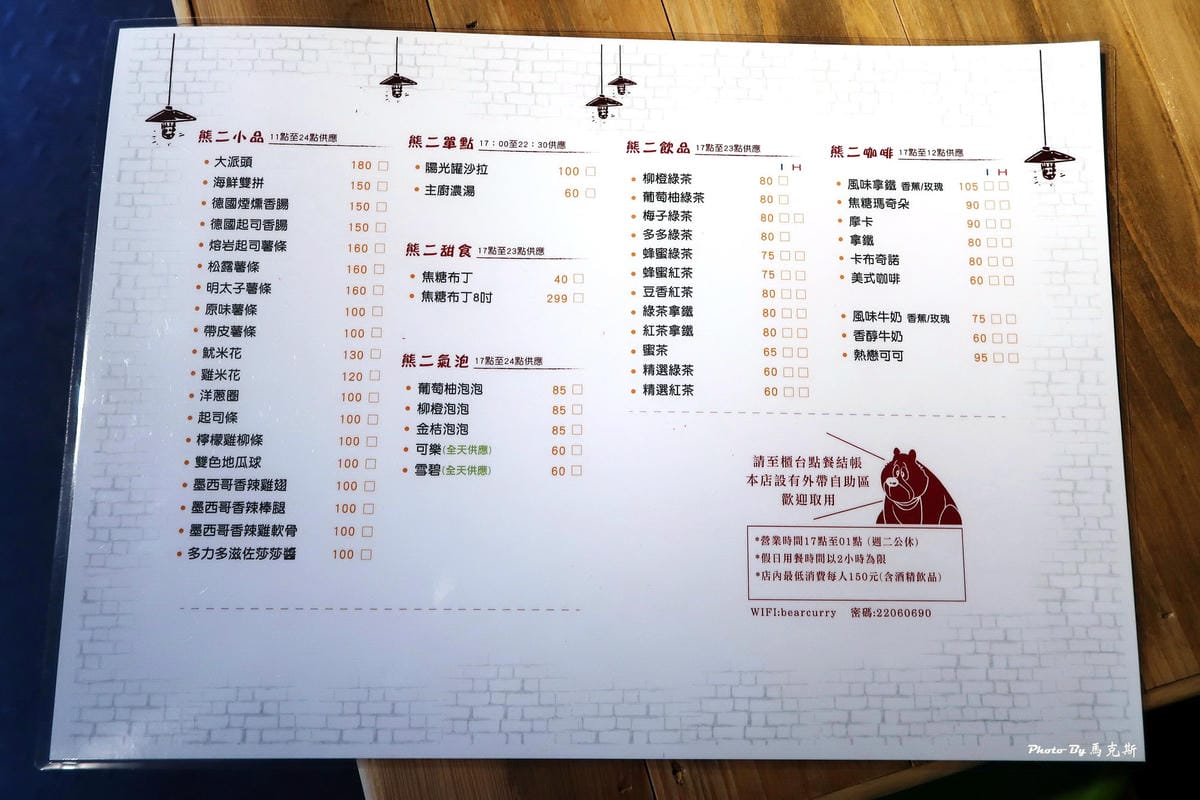 熊二小品 11點至24點供應
大派頭 180 □
海鮮雙拼 150 □
德國煙燻香腸 150 □
德國起司香腸 150 □
熔岩起司薯條 160 □
松露薯條 160 □
明太子薯條 160 □
原味薯條 100 □
帶皮薯條 100 □
魷米花 130 □
雞米花 120 □
洋蔥圈 100 □
起司條 100 □
檸檬雞柳條 100 □
雙色地瓜球 100 □
墨西哥香辣雞翅 100 □
墨西哥香辣棒腿 100 □
墨西哥香辣雞軟骨 100 □
多力多滋佐莎莎醬 100 □
熊二單點 17：00至22：30供應
陽光罐沙拉 100 □
主廚濃湯 60 □
熊二甜食 17點至23點供應
焦糖布丁 40 □
焦糖布丁8吋 299 □
熊二氣泡 17點至24點供應
葡萄柚泡泡 85 □
柳橙泡泡 85 □
金桔泡泡 85 □
可樂(全天供應) 60 □
雪碧(全天供應) 60 □
熊二飲品 17點至23點供應
I H
柳橙綠茶 80 □
葡萄柚綠茶 80 □
梅子綠茶 80 □□
多多綠茶 80 □
蜂蜜綠茶 75 □□
蜂蜜紅茶 75 □□
豆香紅茶 80 □□
綠茶拿鐵 80 □□
紅茶拿鐵 80 □□
蜜茶 65 □□
精選綠茶 60 □□
精選紅茶 60 □□
熊二咖啡 17點至12點供應
I H
風味拿鐵 香蕉/玫瑰 105 □□
焦糖瑪奇朵 90 □□
摩卡 90 □□
拿鐵 80 □□
卡布奇諾 80 □□
美式咖啡 60 □□
風味牛奶 香蕉/玫瑰 75 □□
香醇牛奶 60 □□
熱戀可可 95 □□
請至櫃台點餐結帳
本店設有外帶自助區
歡迎取用
*營業時間17點至01點 (週二公休)
*假日用餐時間以2小時為限
*店內最低消費每人150元(含酒精飲品)
WIFI:bearcurry 密碼:22060690
Photo By 馬克斯